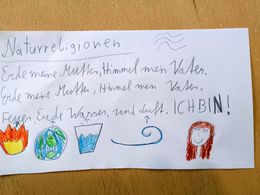 Naturreligionen
Erde meine Mutter, Himmel mein Vater.
Erde meine Mutter, Himmel mein Vater.
Feuer Erde Wasser und Luft. ICH BIN!